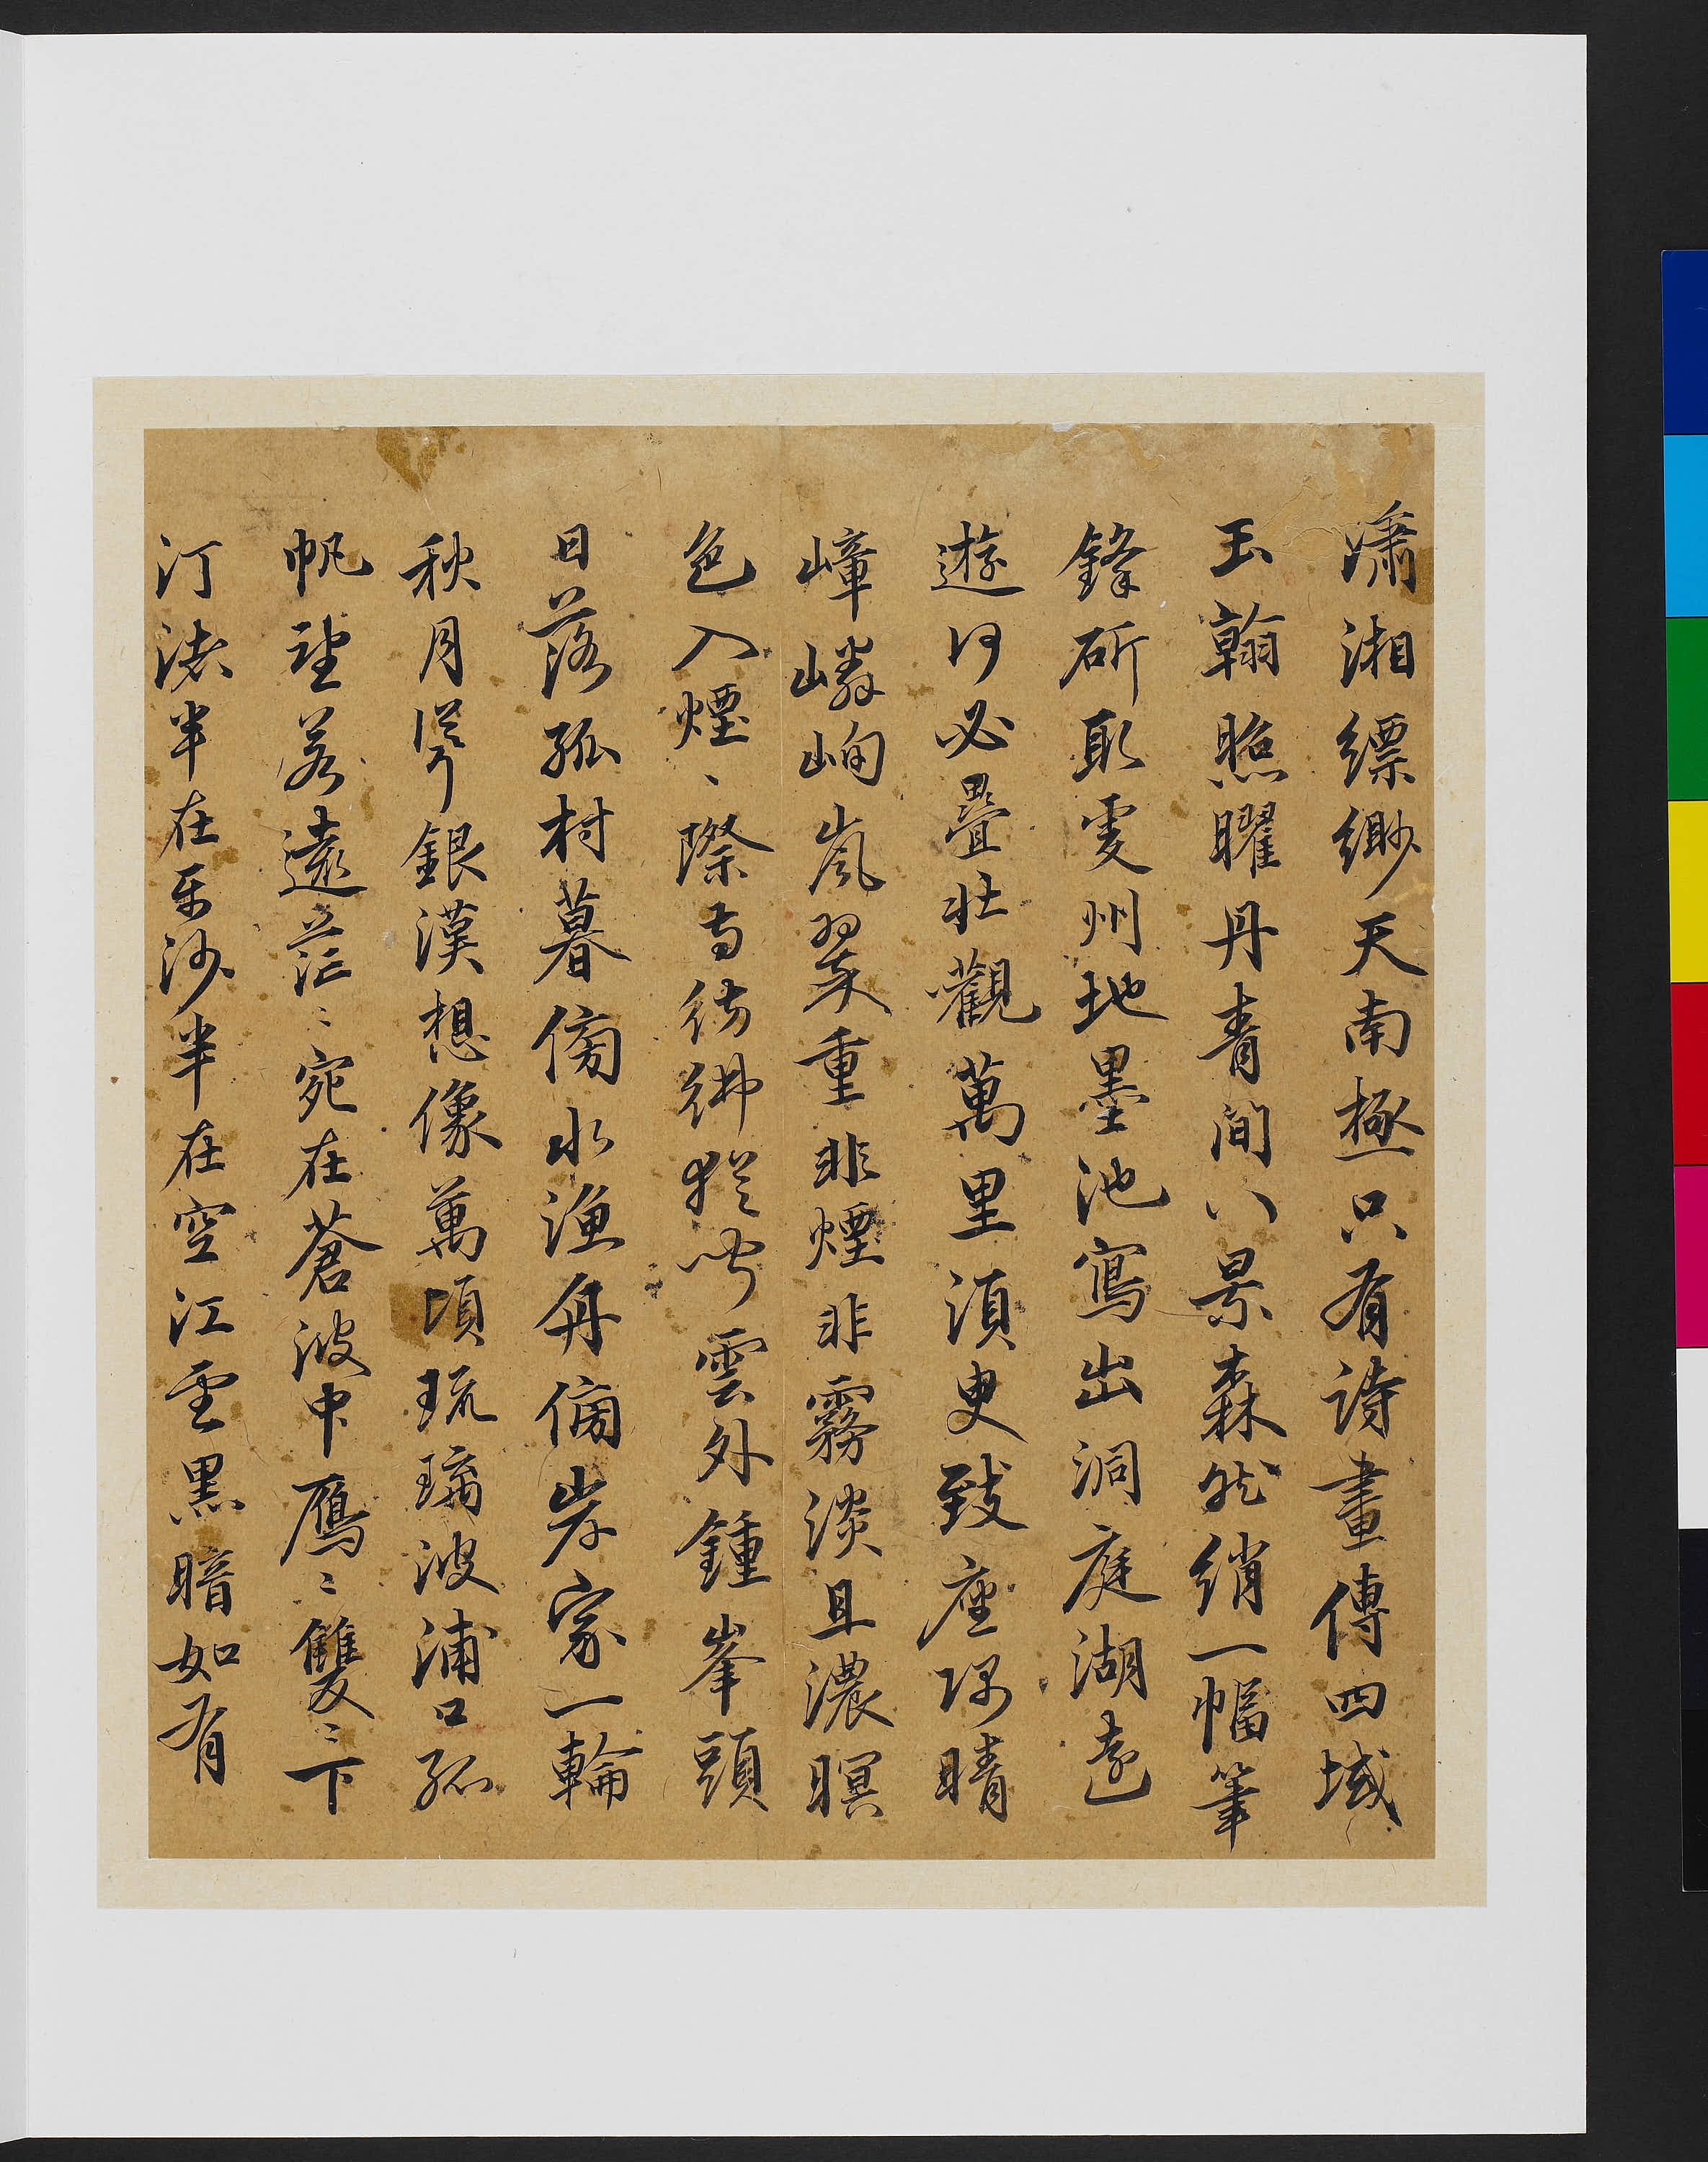 瀟湘縹緲天南極只有詩畫傳四域
玉翰照曜丹青間八景森然綃一幅筆
鋒斫取夔州地墨池寫出洞庭湖遠
遊何必疊壯觀萬里須臾致座隅晴
嶂嶙峋嵐翠重非煙非霧淡且濃暝
色入煙、際寺彷彿猶聞雲外鍾峯頭
日落孤村暮傍水漁舟傍岸家一輪
秋月浮銀漢想像萬頃琉璃波浦口孤
帆望若遠茫〻宛在蒼波中鴈〻雙〻下
汀渚半在平沙半在空江雲黑暗如有